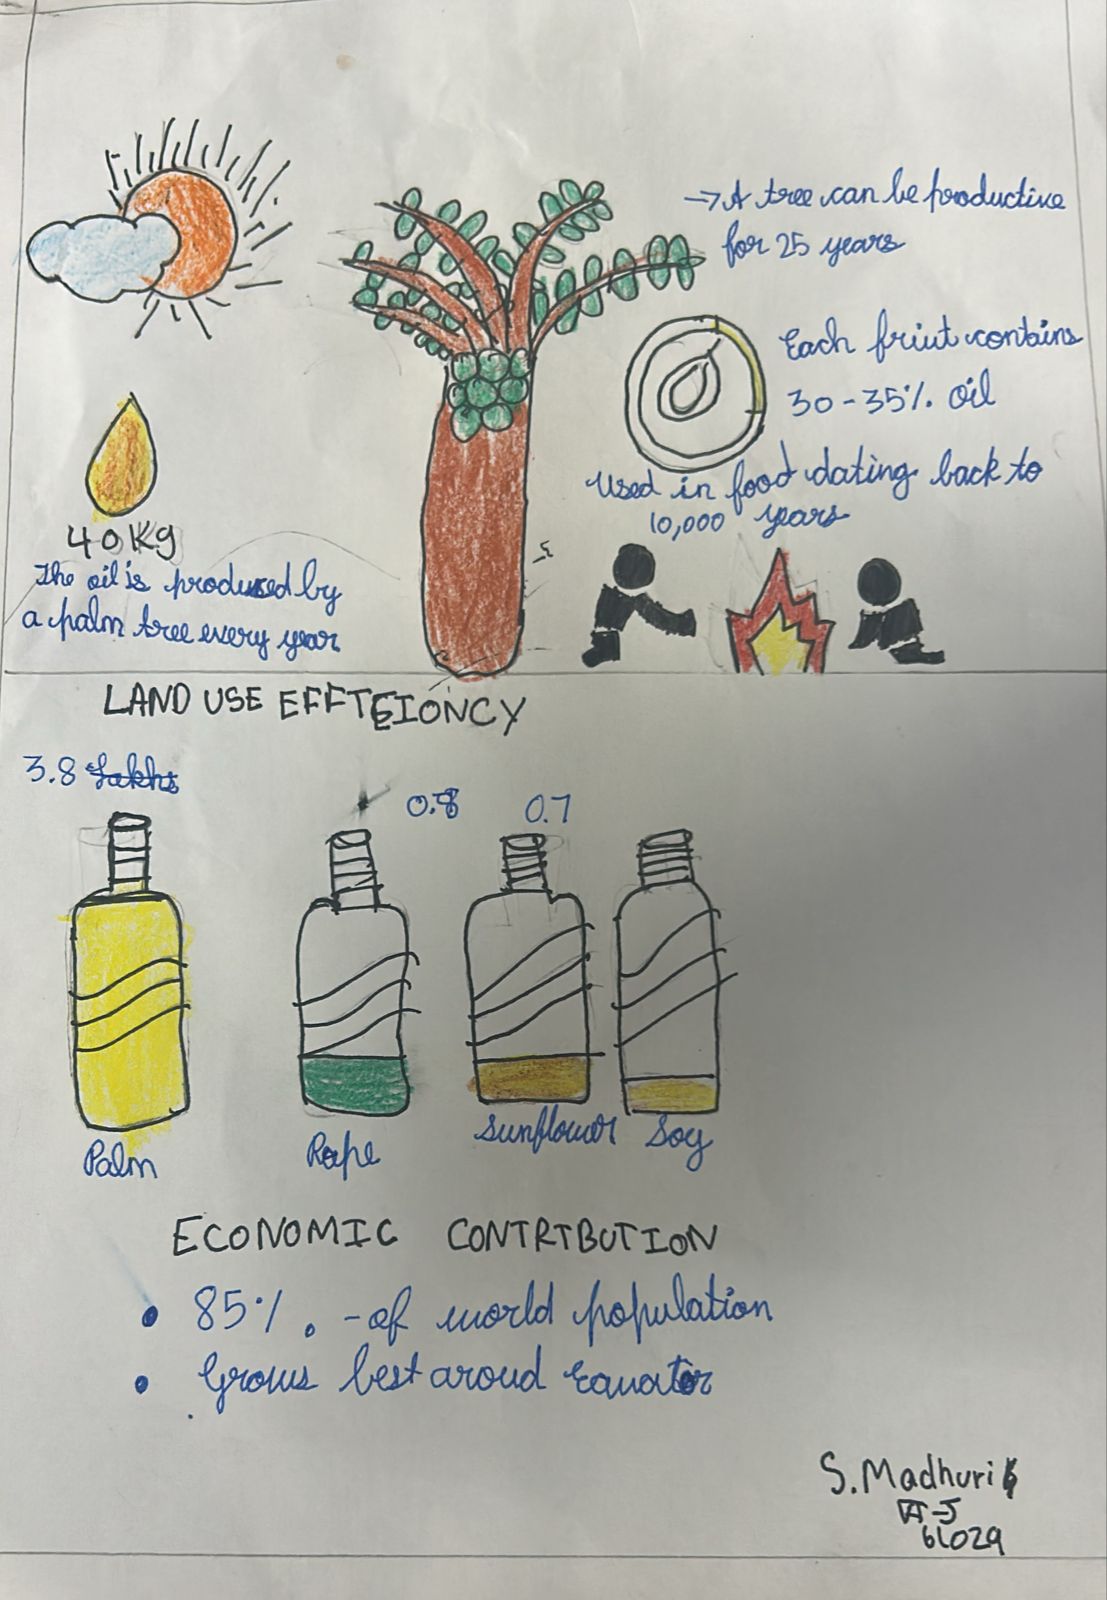 → A tree can be productive
for 25 years
Each friut contains
30-35% oil
Used in food dating back to
10,000 years
40 Kg
The oil is produced by
a palm tree every year
LAND USE EFFTEIONCY
3.8 Lakhs
0.8
0.7
Palm
Rape
Sunflower
Soy
ECONOMIC CONTRTBUTION
• 85% . - of world population
• Grows best aroud Equator
S. Madhuri
VI-J
61029